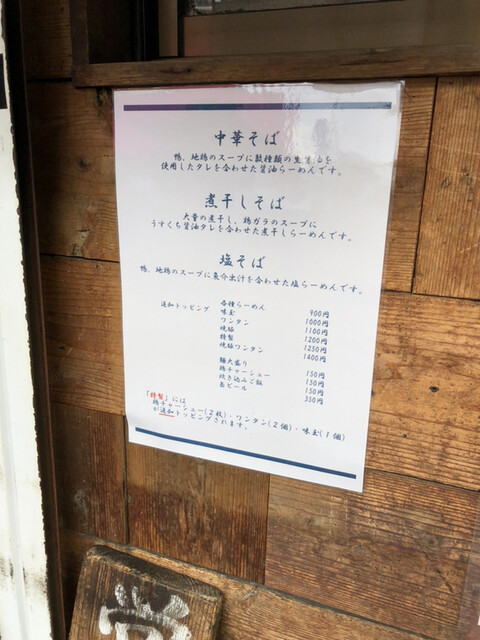 中華そば
鴨、地鶏のスープに数種類の生醤油を
使用したタレを合わせた醤油らーめんです。
煮干しそば
大量の煮干し、鶏ガラのスープに
うすくち醤油タレを合わせた煮干しらーめんです。
塩そば
鴨、地鶏のスープに魚介出汁を合わせた塩らーめんです。
各種らーめん 900円
追加トッピング 味玉 1000円
ワンタン 1100円
焼豚 1200円
特製 1250円
焼豚ワンタン 1400円
麺大盛り 150円
鶏チャーシュー 150円
炊き込みご飯 150円
缶ビール 350円
「特製」には
鶏チャーシュー(2枚)・ワンタン(2個)・味玉(1個)
が追加トッピングされます。
営